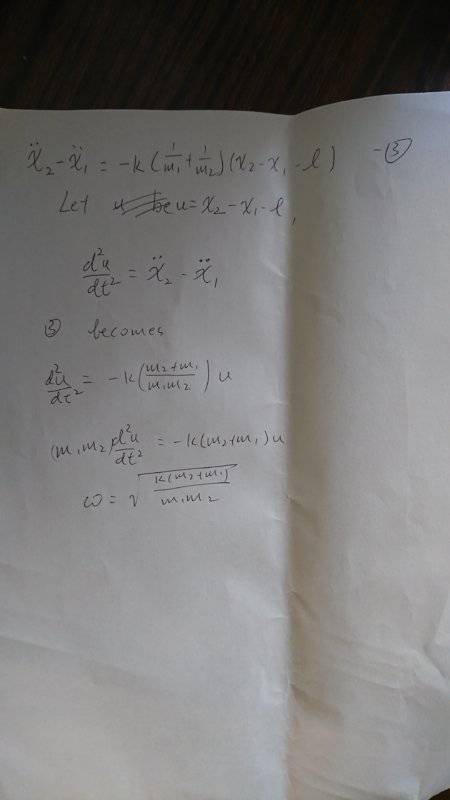 ẍ₂-ẍ₁ = -k(1/m₁+1/m₂)(x₂-x₁-l) -③
Let u=x₂-x₁-l,
d²u/dt² = ẍ₂-ẍ₁
③ becomes
d²u/dt² = -k((m₂+m₁)/(m₁m₂))u
(m₁m₂)d²u/dt² = -k(m₂+m₁)u
ω = √(k(m₂+m₁)/(m₁m₂))